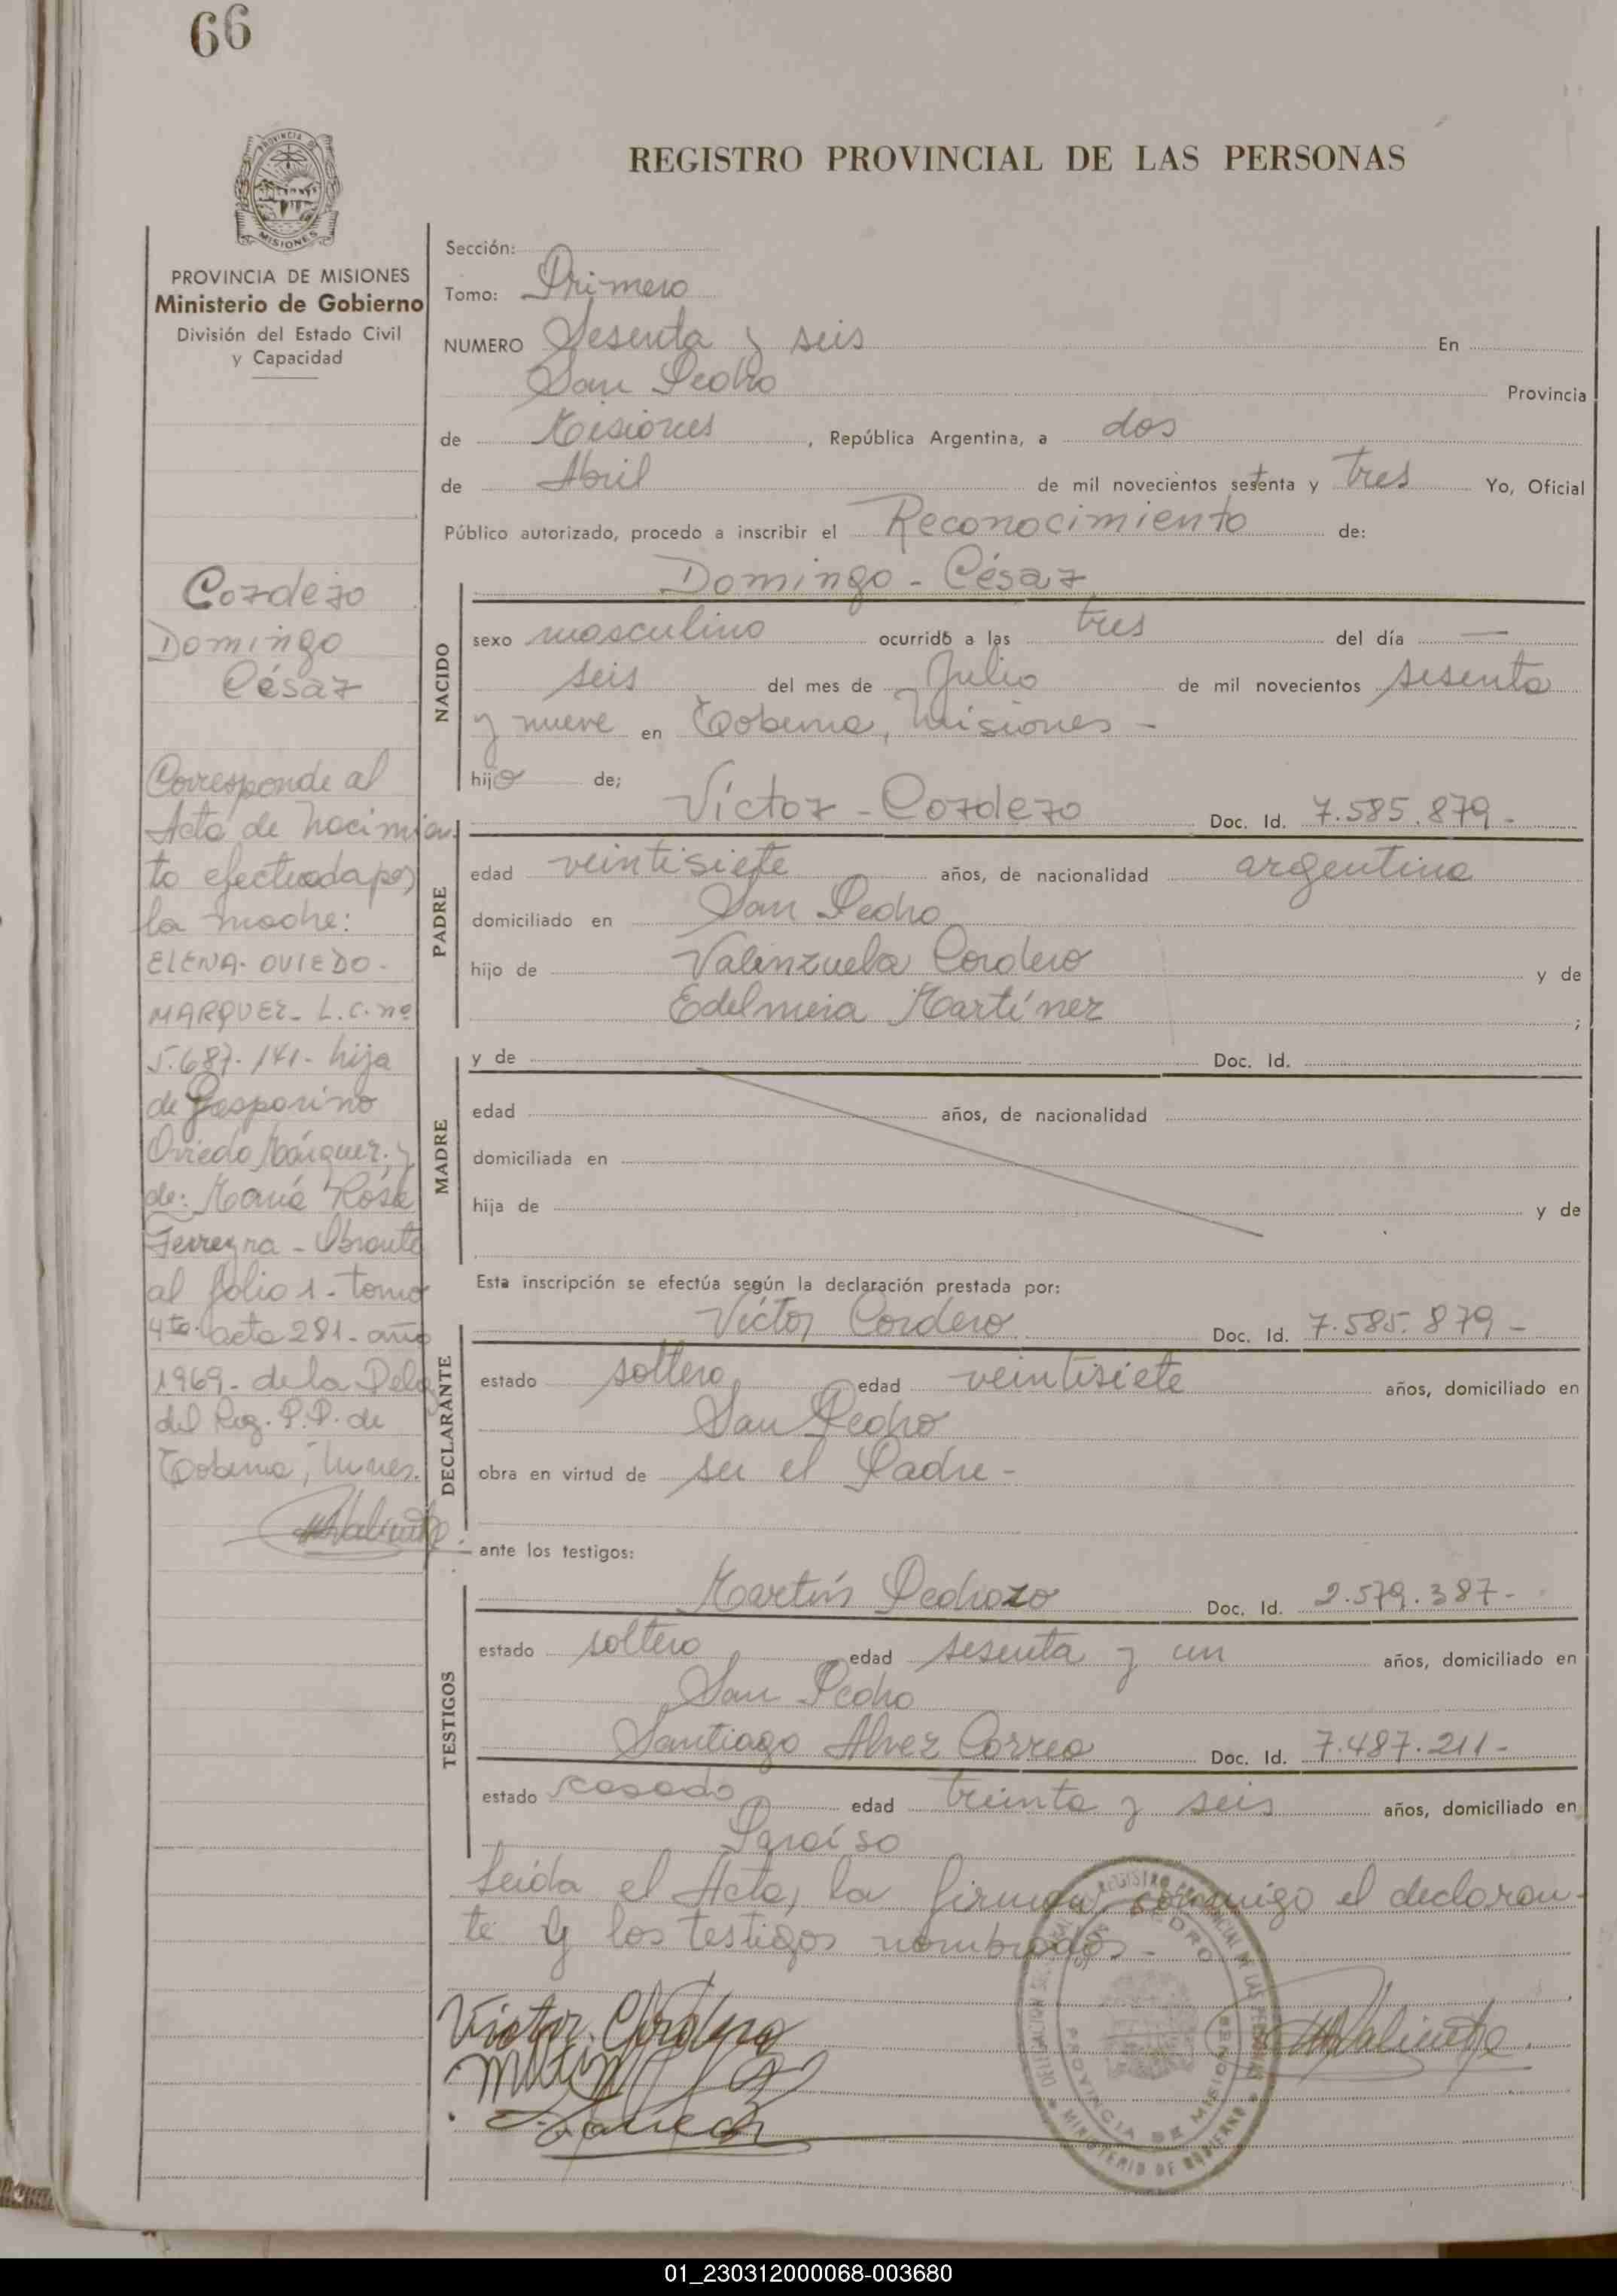 66
REGISTRO PROVINCIAL DE LAS PERSONAS
PROVINCIA DE MISIONES
Ministerio de Gobierno
División del Estado Civil
y Capacidad
Cordero
Domingo
César
Corresponde al
Acta de Nacimien
to efectuada por
la madre:
ELENA. OVIEDO -
MARQUEZ - L.C. nº
5.687.141 - hija
de Gasparino
Oviedo Márquez. y
de: María Rosa
Ferreyra - Obrante
al folio 1 - tomo
4to. acta 281 - año
1969 - de la Deleg
del Reg. P.P. de
Tobuna, Mnes.
Sección:
Tomo: Primero
NUMERO Sesenta y seis En
San Pedro Provincia
de Misiones, República Argentina, a dos
de Abril de mil novecientos setenta y tres Yo, Oficial
Público autorizado, procedo a inscribir el Reconocimiento de:
Domingo - César
NACIDO
sexo masculino ocurrido a las tres del día —
seis del mes de Julio de mil novecientos sesenta
y nueve en Tobuna, Misiones -
hijo de;
Víctor - Cordero Doc. Id. 7.585.879 -
PADRE
edad veintisiete años, de nacionalidad argentina
domiciliado en San Pedro
hijo de Valenzuela Cordero y de
Edelmira Martínez ;
MADRE
y de Doc. Id.
edad años, de nacionalidad
domiciliada en
hija de y de
Esta inscripción se efectúa según la declaración prestada por:
DECLARANTE
Víctor Cordero Doc. Id. 7.585.879 -
estado soltero edad veintisiete años, domiciliado en
San Pedro
obra en virtud de ser el Padre -
ante los testigos:
TESTIGOS
Martín Pedrozo Doc. Id. 2.579.387 -
estado soltero edad sesenta y un años, domiciliado en
San Pedro
Santiago Alvez Correa Doc. Id. 7.487.211 -
estado casado edad treinta y seis años, domiciliado en
Paraíso
Leída el Acta, la firman conmigo el declaran-
te y los testigos nombrados. -
Victor. Cordero
PROVINCIA DE MISIONES
MINISTERIO DE GOBIERNO
01_230312000068-003680